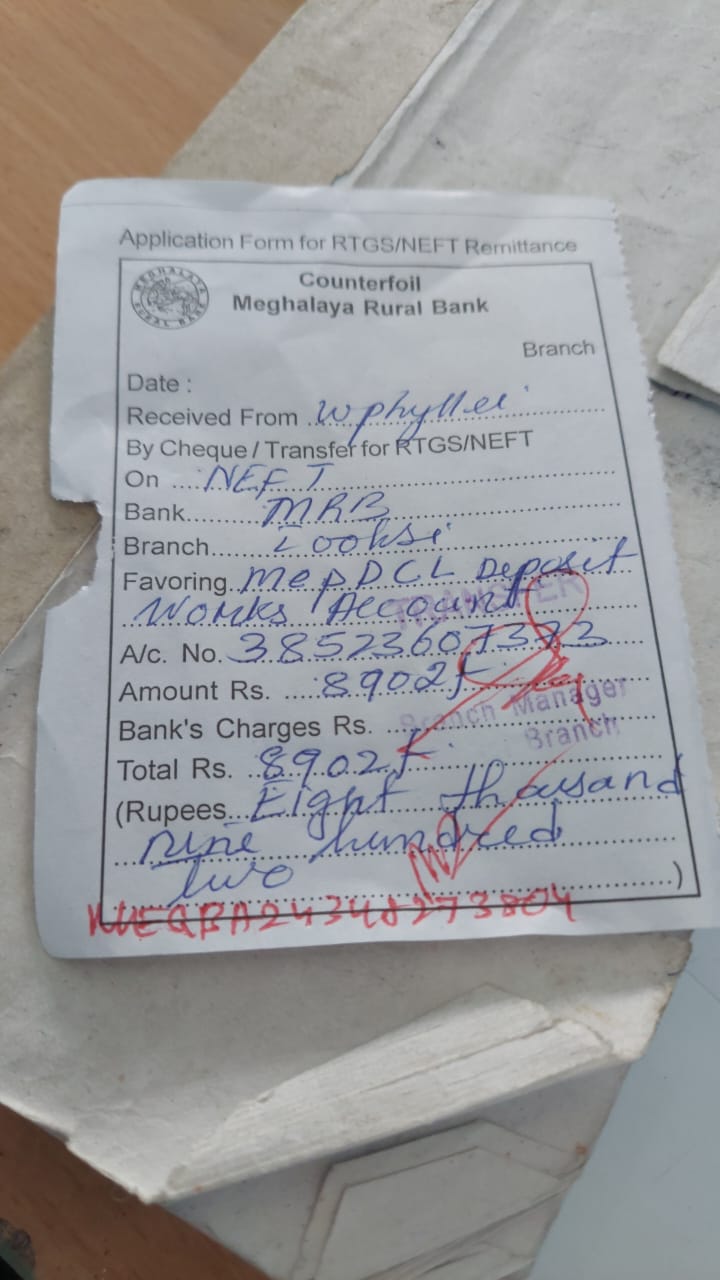 Application Form for RTGS/NEFT Remittance
MEGHALAYA RURAL BANK
Counterfoil
Meghalaya Rural Bank
Branch
Date :
Received From wphyllei
By Cheque / Transfer for RTGS/NEFT
On NEFT
Bank MRB
Branch Looksi
Favoring MePDCL Deposit
Works Account
TRANSFER
A/c. No. 38523607383
Amount Rs. 8902/-
Bank's Charges Rs.
Branch Manager
Branch
Total Rs. 8902/-
(Rupees Eight thousand
nine hundred
two )